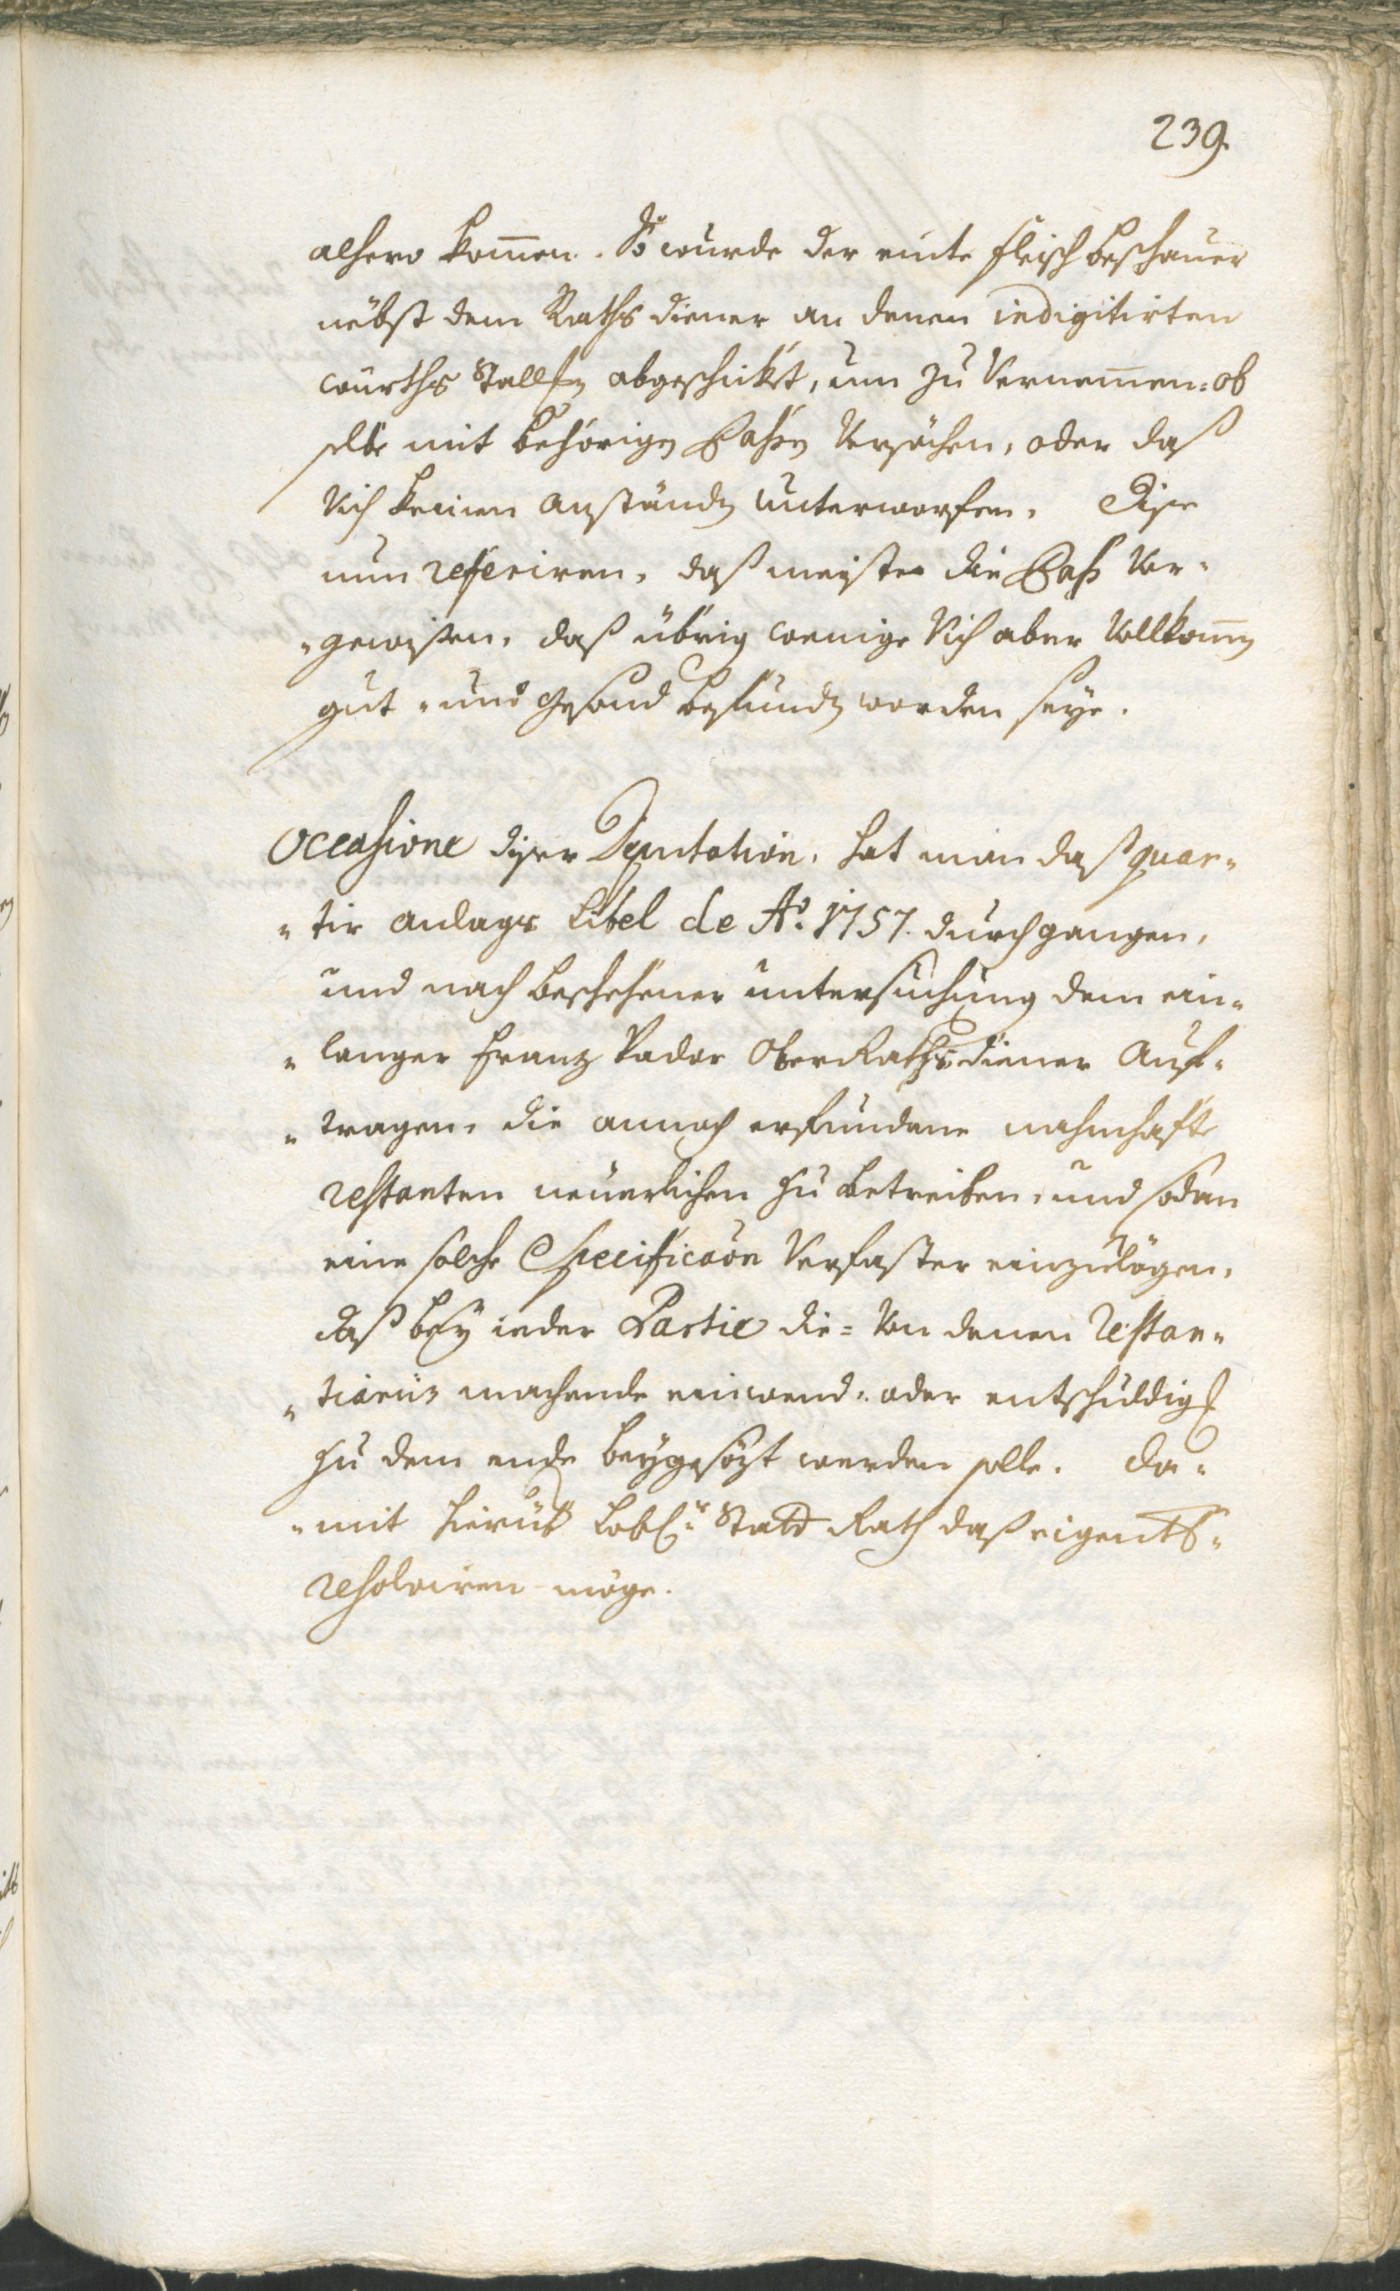 239.
alhero kom̅en. So wurde der einte fleisch beschauer
nebst dem Raths diener an denen indigitirten
würths Stallen abgeschikt, um zu Vernem̅en: ob
selbe mit behörigen Pahsen Versöchen, oder daß
Vich keinen anständen unterworfen. Dise
nun referiren, daß meiste die Pahs Vor-
-gewisen, daß übrig wenige Vich aber Vollkom̅en
gut- und gesund befunden worden seye.
Occasione diser Deputation, hat man daß quar-
-tir anlags Libel de Aō. 1757. durchgangen,
und nach beschehener untersuchung dem ein-
-langer Franz Vadar Ober Raths diener Auf-
-tragen, die annoch erfundene nahmhafte
restanten neuerlichen zu betreiben, und sodan
eine solche Specificaōn Verfaster einzulögen,
daß bey ieder Partie die- Von denen restan-
-tiariis machende einwend- oder entschuldig
zu dem ende beygesözt werden solle. da-
-mit hierüb Lobl.r Statt Rath daß eigentl-
resolviren möge.